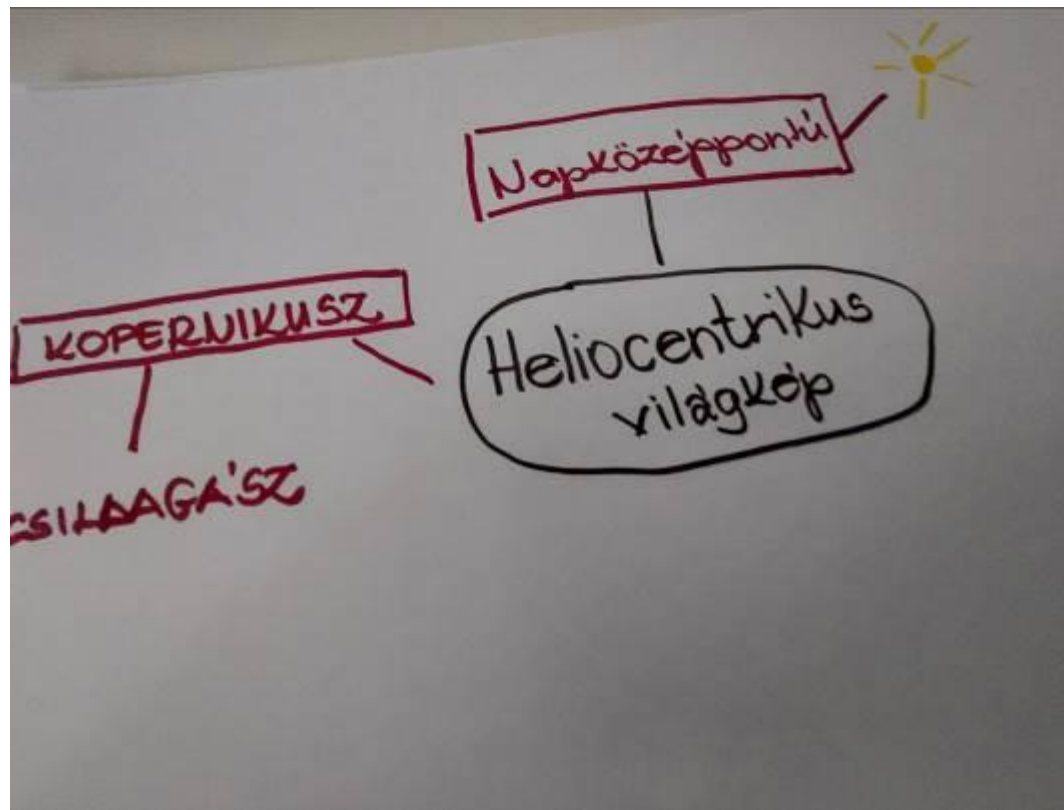 Napközéppontú
KOPERNIKUSZ
Heliocentrikus
világkép
CSILLAGÁSZ